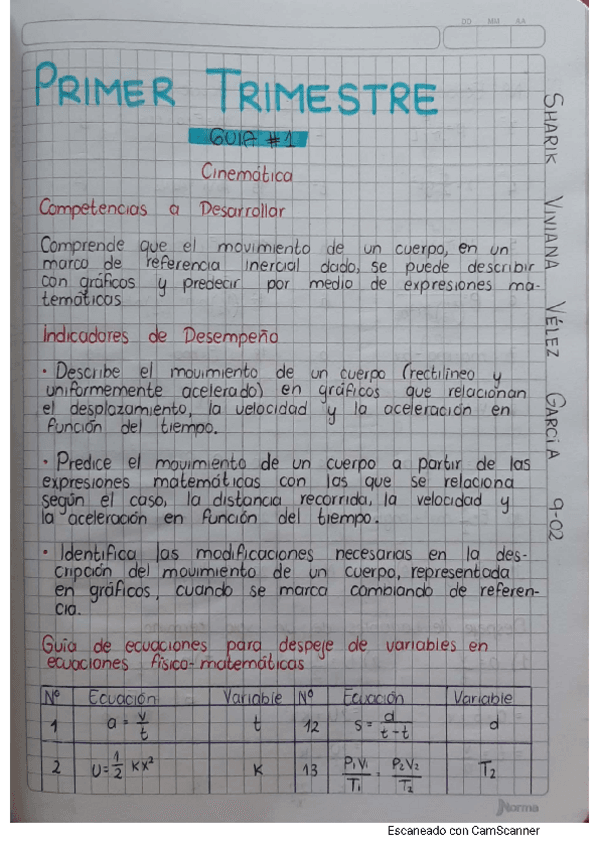 DD MM AA
PRIMER TRIMESTRE
GUIA #1
Cinemática
Competencias a Desarrollar
Comprende que el movimiento de un cuerpo, en un
marco de referencia inercial dado, se puede describir
con gráficos y predecir por medio de expresiones ma-
temáticos
Indicadores de Desempeño
· Describe el movimiento de un cuerpo (rectilineo y
uniformemente acelerado) en gráficos que relacionan
el desplazamiento, la velocidad y la aceleración en
función del tiempo.
· Predice el movimiento de un cuerpo a partir de las
expresiones matemáticas con las que se relaciona
según el caso, la distancia recorrida, la velocidad y
la aceleración en función del tiempo.
· Identifica las modificaciones necesarias en la des-
cripción del movimiento de un cuerpo, representada
en gráficos, cuando se marca cambiando de referen-
cia.
Guía de ecuaciones para despeje de variables en
ecuaciones físico-matemáticas
Nº Ecuación Variable Nº Ecuación Variable
1 a = v/t t 12 s = d/t-t d
2 U = 1/2 Kx² K 13 P₁V₁/T₁ = P₂V₂/T₂ T₂
SHARIK VIVIANA VÉLEZ GARCIA 9-02
Norma
Escaneado con CamScanner